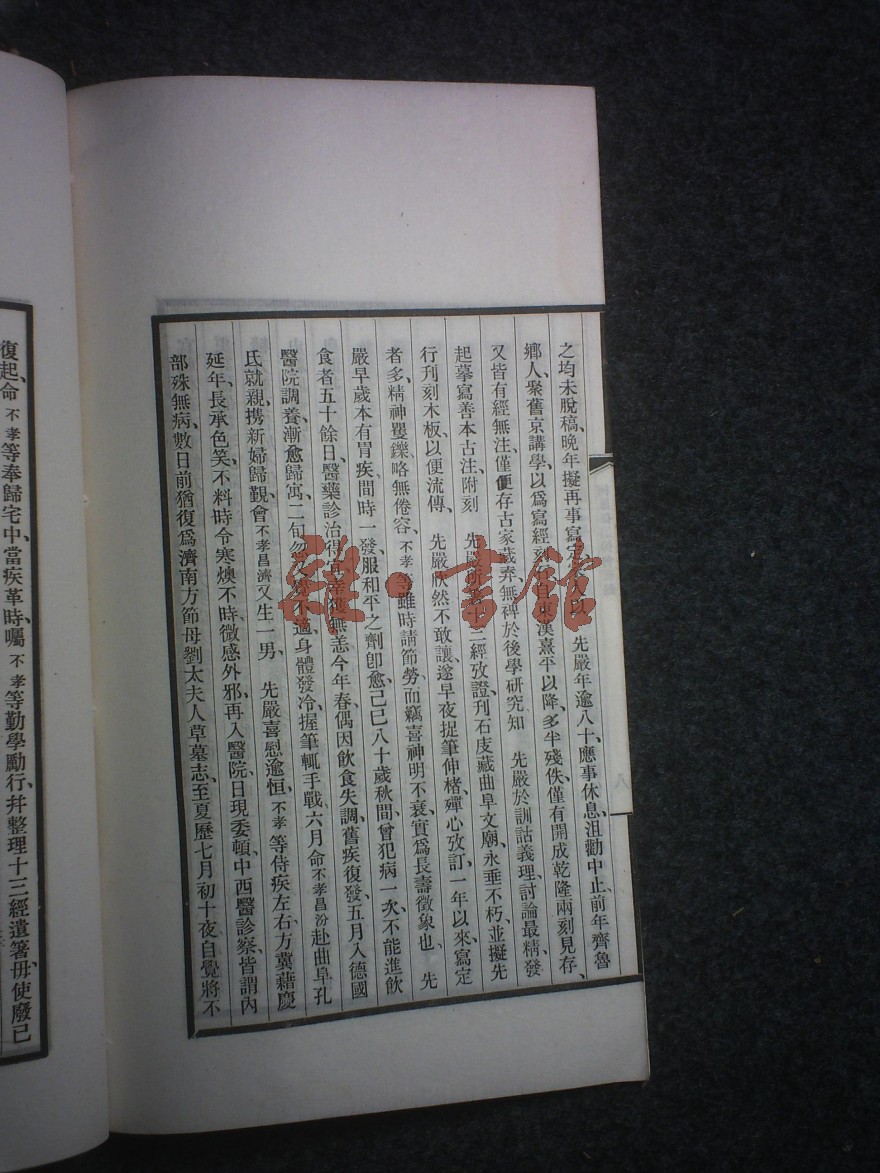 之均未脫稿、晚年擬再事寫定、人以　先嚴年逾八十、應事休息、沮勸中止、前年齊魯
鄉人、聚舊京講學、以爲寫經刻自東漢熹平以降、多半殘佚、僅有開成乾隆兩刻見存、
又皆有經無注、僅便存古家藏弆、無裨於後學研究知　先嚴於訓詁義理、討論最精、發
起摹寫善本古注、附刻　先嚴所三經攷證、刊石庋藏曲阜文廟、永垂不朽、並擬先
行刊刻木板、以便流傳、　先嚴欣然不敢讓、遂早夜捉筆伸楮、殫心攷訂、一年以來、寫定
者多、精神矍鑠、略無倦容、不孝等雖時請節勞、而竊喜神明不衰、實爲長壽徵象也、　先
嚴早歲本有胃疾、間時一發、服和平之劑卽愈、己巳八十歲秋間、曾犯病一次、不能進飲
食者五十餘日、醫藥診治得宜、幸獲無恙、今年春、偶因飲食失調、舊疾復發、五月入德國
醫院調養、漸愈歸寓、二旬忽又覺不適、身體發冷、握筆輒手戰、六月命不孝昌汾赴曲阜孔
氏就親、攜新婦歸覲、會不孝昌濟又生一男、　先嚴喜慰逾恒、不孝等侍疾左右、方冀藉慶
延年、長承色笑、不料時令寒燠不時、微感外邪、再入醫院、日現委頓、中西醫診察、皆謂內
部殊無病、數日前猶復爲濟南方節母劉太夫人草墓志、至夏歷七月初十夜、自覺將不
復起、命不孝等奉歸宅中、當疾革時、囑不孝等勤學勵行、幷整理十三經遺箸、毋使廢已
雜·書館